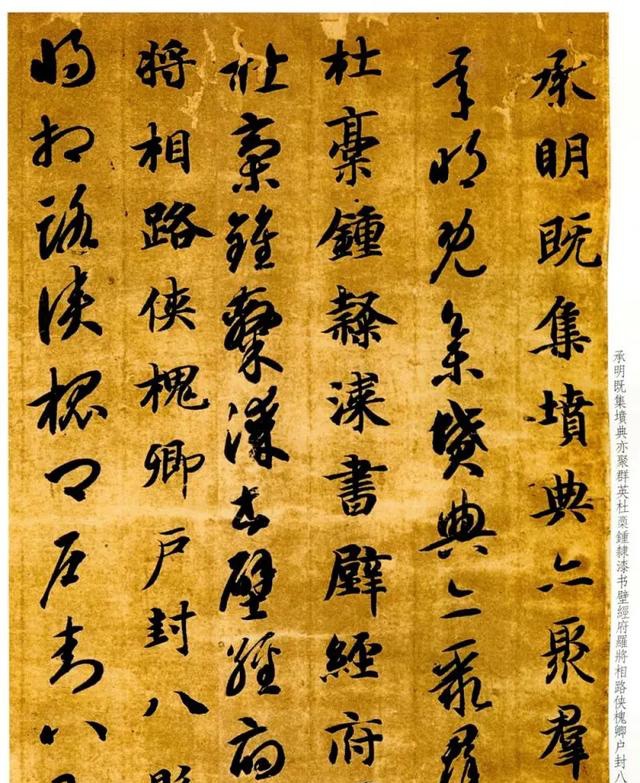 承明既集墳典亦聚群英杜稾鍾隸漆书壁經府羅將相路侠槐卿户封八
承明既集墳典亦聚羣
承明既集墳典亦聚羣
杜稾鍾隸漆書壁經府
杜稾鍾隸漆書壁經府
將相路俠槐卿戶封八縣
將相路俠槐卿戶封八